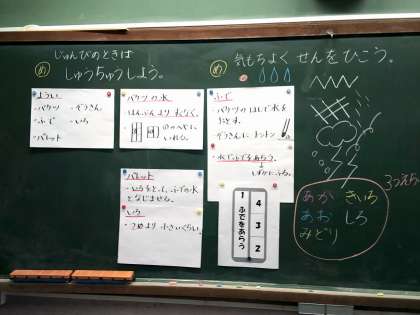 じゅんびのときは
め しゅうちゅうしよう。
ようい
・バケツ ・ぞうきん
・ふで ・いろ
・パレット
バケツの水
はんぶんより すくなく。
いれる。
パレット
いろを出し、ふでの水
とまぜません。
いろ
・つめより 小さいくらい。
め 気もちよく せんをひこう。
ふで
・バケツのはしで水を
おとす。
ぞうきんに トントン
・水でふでをあらう。
1 ふであらう
4
3
2
3つえらぶ
あか きいろ
あお しろ
みどり